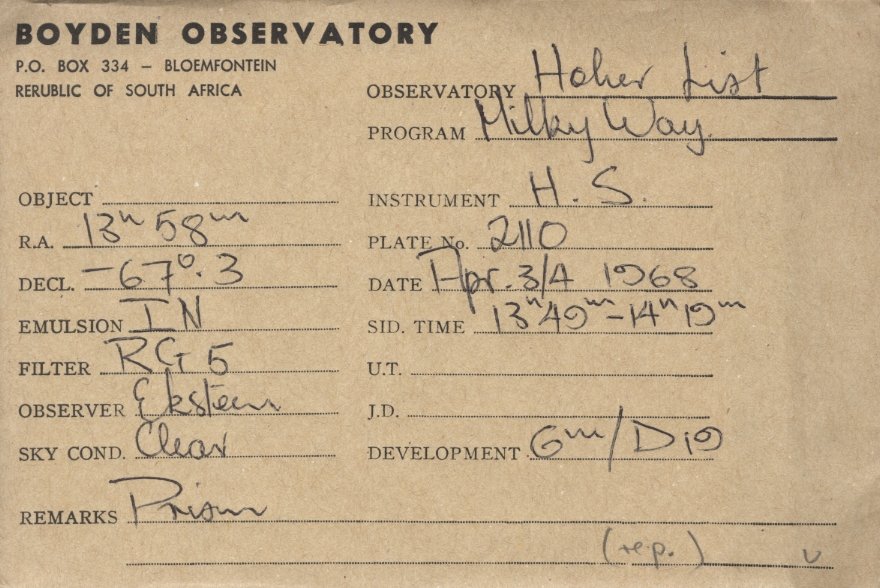 BOYDEN OBSERVATORY
P.O. BOX 334 – BLOEMFONTEIN
RERUBLIC OF SOUTH AFRICA
OBSERVATORY Hoher List
PROGRAM Milky Way
OBJECT
INSTRUMENT H. S.
R.A. 13h 58m
PLATE No. 2110
DECL. -67°.3
DATE Apr. 3/4 1968
EMULSION IN
SID. TIME 13h49m-14h19m
FILTER RG 5
U.T.
OBSERVER Eksteen
J.D.
SKY COND. Clear
DEVELOPMENT 6m/D19
REMARKS Prism
(rep.) v